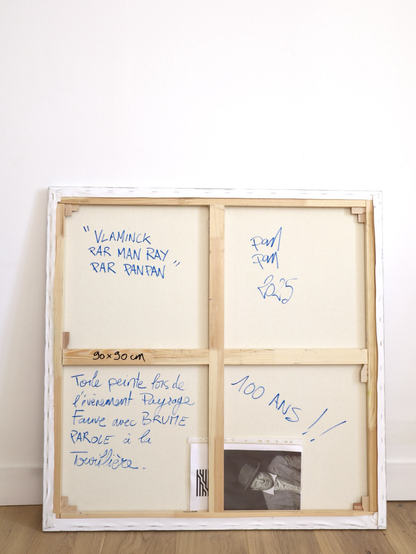 "VLAMINCK
PAR MAN RAY
PAR PANPAN"
pan
pan
2025
90x90 cm
Toile peinte lors de
l'évènement Paysage
Fauve avec BRUME
PAROLE à la
100 ANS !!